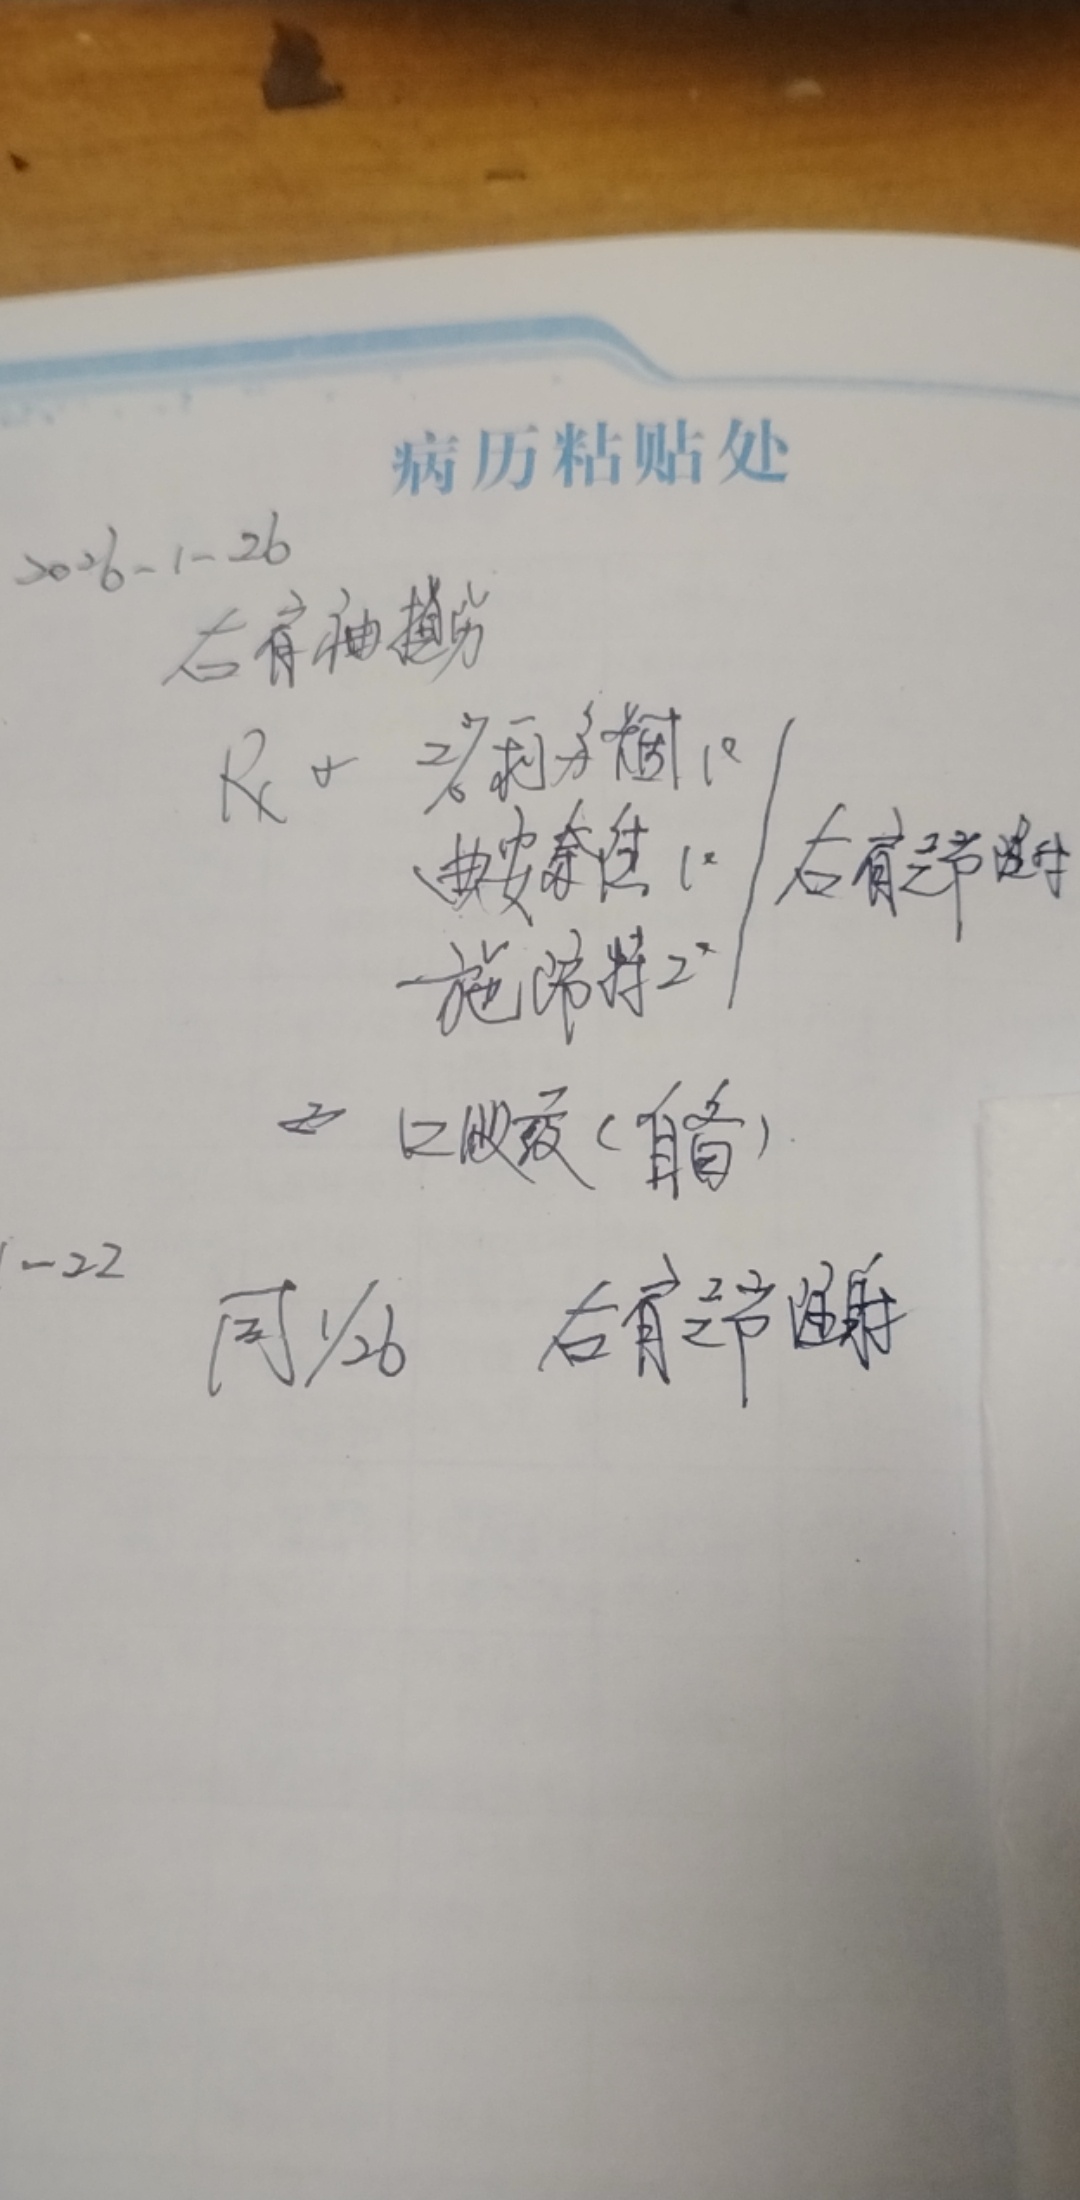 病历粘贴处
2026-1-26
右肩袖损伤
Rx ① 2%利多卡因 1支
曲安奈德 1支
施沛特 2支
右肩关节注射
② 口服药(自备)
1-22
同 1/26 右肩关节注射